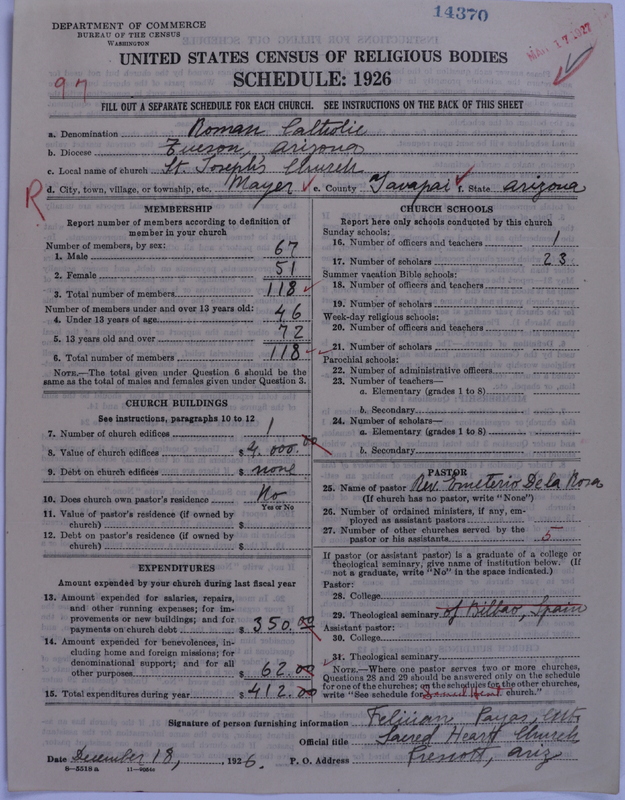 14370
DEPARTMENT OF COMMERCE
BUREAU OF THE CENSUS
WASHINGTON
MAR 17 1927
UNITED STATES CENSUS OF RELIGIOUS BODIES
SCHEDULE: 1926
97
FILL OUT A SEPARATE SCHEDULE FOR EACH CHURCH. SEE INSTRUCTIONS ON THE BACK OF THIS SHEET
a. Denomination Roman Catholic
b. Diocese Tucson, Arizona
c. Local name of church St. Joseph's Church
R d. City, town, village, or township, etc. Mayer e. County Yavapai f. State Arizona
MEMBERSHIP
Report number of members according to definition of
member in your church
Number of members, by sex:
1. Male 67
2. Female 51
3. Total number of members 118
Number of members under and over 13 years old:
4. Under 13 years of age 46
5. 13 years old and over 72
6. Total number of members 118
NOTE.—The total given under Question 6 should be
same as the total of males and females given under Question 3.
CHURCH BUILDINGS
See instructions, paragraphs 10 to 12
7. Number of church edifices 1
8. Value of church edifices $ 4,000.00
9. Debt on church edifices $ none
10. Does church own pastor's residence No
Yes or No
11. Value of pastor's residence (if owned by
church) $
12. Debt on pastor's residence (if owned by
church) $
EXPENDITURES
Amount expended by your church during last fiscal year
13. Amount expended for salaries, repairs,
and other running expenses; for im-
provements or new buildings; and for
payments on church debt $ 350.00
14. Amount expended for benevolences, in-
cluding home and foreign missions; for
denominational support; and for all
other purposes $ 62.00
15. Total expenditures during year $ 412.00
CHURCH SCHOOLS
Report here only schools conducted by this church
Sunday schools:
16. Number of officers and teachers 1
17. Number of scholars 23
Summer vacation Bible schools:
18. Number of officers and teachers
19. Number of scholars
Week-day religious schools:
20. Number of officers and teachers
21. Number of scholars
Parochial schools:
22. Number of administrative officers
23. Number of teachers—
a. Elementary (grades 1 to 8)
b. Secondary
24. Number of scholars—
a. Elementary (grades 1 to 8)
b. Secondary
PASTOR
25. Name of pastor Rev. Emeterio De la Rosa
(If church has no pastor, write "None")
26. Number of ordained ministers, if any, em-
ployed as assistant pastors
27. Number of other churches served by the
pastor or his assistants 5
If pastor (or assistant pastor) is a graduate of a college or
theological seminary, give name of institution below. (If
not a graduate, write "No" in the space indicated.)
Pastor:
28. College
29. Theological seminary of Bilbao, Spain
Assistant pastor:
30. College
31. Theological seminary
NOTE.—Where one pastor serves two or more churches,
Questions 28 and 29 should be answered only on the schedule
for one of the churches; on the schedules for the other churches,
write "See schedule for Sacred Heart church."
Signature of person furnishing information Felician Payas,
Official title Sacred Heart Church
Date December 18, 1926. P. O. Address Prescott, Ariz
8—5518 a